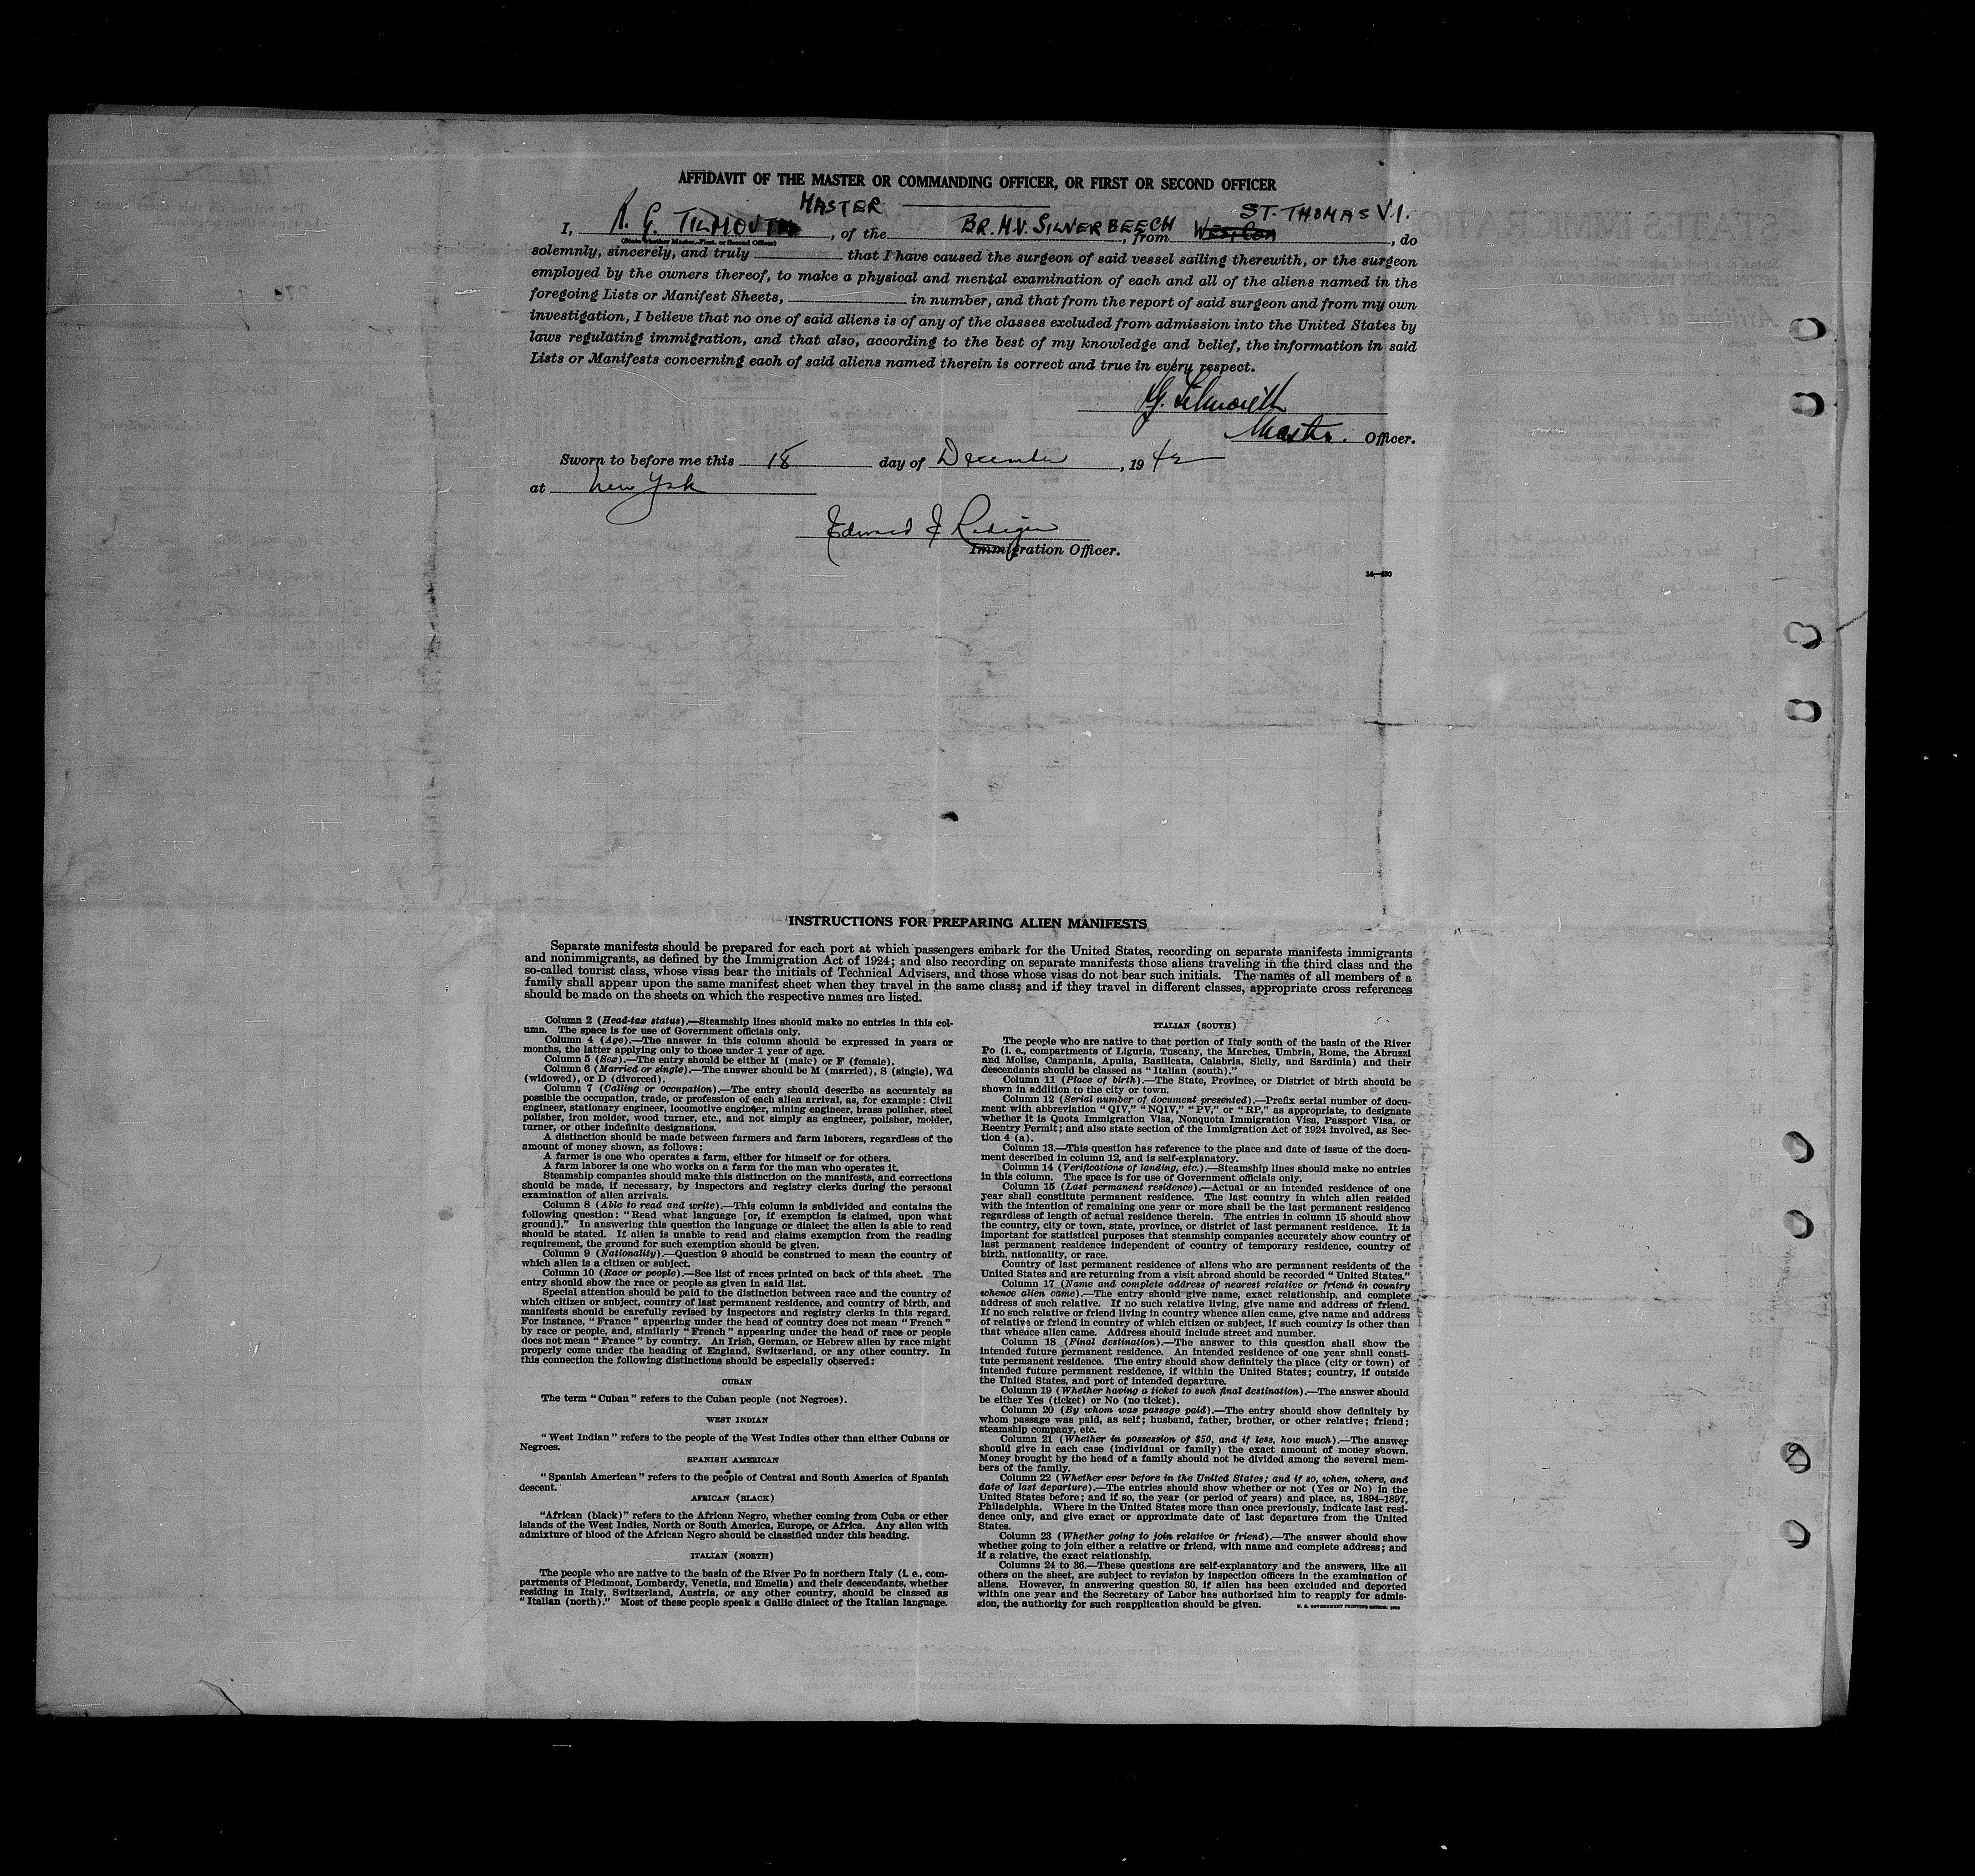 AFFIDAVIT OF THE MASTER OR COMMANDING OFFICER, OR FIRST OR SECOND OFFICER
MASTER
I, R. G. TILMOUTH, of the BR. M.V. SILVERBEECH, from ST. THOMAS V.I., do
(State whether Master, First, or Second Officer)
solemnly, sincerely, and truly that I have caused the surgeon of said vessel sailing therewith, or the surgeon
employed by the owners thereof, to make a physical and mental examination of each and all of the aliens named in the
foregoing Lists or Manifest Sheets, in number, and that from the report of said surgeon and from my own
investigation, I believe that no one of said aliens is of any of the classes excluded from admission into the United States by
laws regulating immigration, and that also, according to the best of my knowledge and belief, the information in said
Lists or Manifests concerning each of said aliens named therein is correct and true in every respect.
G. Tilmouth
Master. Officer.
Sworn to before me this 18 day of December, 1942
at New York
Edward F
Immigration Officer.
INSTRUCTIONS FOR PREPARING ALIEN MANIFESTS
Separate manifests should be prepared for each port at which passengers embark for the United States, recording on separate manifests immigrants
and nonimmigrants, as defined by the Immigration Act of 1924; and also recording on separate manifests those aliens traveling in the third class and the
so-called tourist class, whose visas bear the initials of Technical Advisers, and those whose visas do not bear such initials. The names of all members of a
family shall appear upon the same manifest sheet when they travel in the same class; and if they travel in different classes, appropriate cross references
should be made on the sheets on which the respective names are listed.
Column 2 (Head-tax status).—Steamship lines should make no entries in this col-
umn. The space is for use of Government officials only.
Column 4 (Age).—The answer in this column should be expressed in years or
months, the latter applying only to those under 1 year of age.
Column 5 (Sex).—The entry should be either M (male) or F (female).
Column 6 (Married or single).—The answer should be M (married), S (single), Wd
(widowed), or D (divorced).
Column 7 (Calling or occupation).—The entry should describe as accurately as
possible the occupation, trade, or profession of each alien arrival, as, for example: Civil
engineer, stationary engineer, locomotive engineer, mining engineer, brass polisher, steel
polisher, iron molder, wood turner, etc., and not simply as engineer, polisher, molder,
turner, or other indefinite designations.
A distinction should be made between farmers and farm laborers, regardless of the
amount of money shown, as follows:
A farmer is one who operates a farm, either for himself or for others.
A farm laborer is one who works on a farm for the man who operates it.
Steamship companies should make this distinction on the manifests, and corrections
should be made, if necessary, by inspectors and registry clerks during the personal
examination of alien arrivals.
Column 8 (Able to read and write).—This column is subdivided and contains the
following question: "Read what language [or, if exemption is claimed, upon what
ground]." In answering this question the language or dialect the alien is able to read
should be stated. If alien is unable to read and claims exemption from the reading
requirement, the ground for such exemption should be given.
Column 9 (Nationality).—Question 9 should be construed to mean the country of
which alien is a citizen or subject.
Column 10 (Race or people).—See list of races printed on back of this sheet. The
entry should show the race or people as given in said list.
Special attention should be paid to the distinction between race and the country of
which citizen or subject, country of last permanent residence, and country of birth, and
manifests should be carefully revised by inspectors and registry clerks in this regard.
For instance, "France" appearing under the head of country does not mean "French"
by race or people, and, similarly "French" appearing under the head of race or people
does not mean "France" by country. An Irish, German, or Hebrew alien by race might
properly come under the heading of England, Switzerland, or any other country. In
this connection the following distinctions should be especially observed:
CUBAN
The term "Cuban" refers to the Cuban people (not Negroes).
WEST INDIAN
"West Indian" refers to the people of the West Indies other than either Cubans or
Negroes.
SPANISH AMERICAN
"Spanish American" refers to the people of Central and South America of Spanish
descent.
AFRICAN (BLACK)
"African (black)" refers to the African Negro, whether coming from Cuba or other
islands of the West Indies, North or South America, Europe, or Africa. Any alien with
admixture of blood of the African Negro should be classified under this heading.
ITALIAN (NORTH)
The people who are native to the basin of the River Po in northern Italy (i. e., com-
partments of Piedmont, Lombardy, Venetia, and Emelia) and their descendants, whether
residing in Italy, Switzerland, Austria, or any other country, should be classed as
"Italian (north)." Most of these people speak a Gallic dialect of the Italian language.
ITALIAN (SOUTH)
The people who are native to that portion of Italy south of the basin of the River
Po (i. e., compartments of Liguria, Tuscany, the Marches, Umbria, Rome, the Abruzzi
and Molise, Campania, Apulia, Basilicata, Calabria, Sicily, and Sardinia) and their
descendants should be classed as "Italian (south)."
Column 11 (Place of birth).—The State, Province, or District of birth should be
shown in addition to the city or town.
Column 12 (Serial number of document presented).—Prefix serial number of docu-
ment with abbreviation "QIV," "NQIV," "PV," or "RP," as appropriate, to designate
whether it is Quota Immigration Visa, Nonquota Immigration Visa, Passport Visa, or
Reentry Permit; and also state section of the Immigration Act of 1924 involved, as Sec-
tion 4 (a).
Column 13.—This question has reference to the place and date of issue of the docu-
ment described in column 12, and is self-explanatory.
Column 14 (Verifications of landing, etc.).—Steamship lines should make no entries
in this column. The space is for use of Government officials only.
Column 15 (Last permanent residence).—Actual or an intended residence of one
year shall constitute permanent residence. The last country in which alien resided
with the intention of remaining one year or more shall be the last permanent residence
regardless of length of actual residence therein. The entries in column 15 should show
the country, city or town, state, province, or district of last permanent residence. It is
important for statistical purposes that steamship companies accurately show country of
last permanent residence independent of country of temporary residence, country of
birth, nationality, or race.
Country of last permanent residence of aliens who are permanent residents of the
United States and are returning from a visit abroad should be recorded "United States."
Column 17 (Name and complete address of nearest relative or friend in country
whence alien came).—The entry should give name, exact relationship, and complete
address of such relative. If no such relative living, give name and address of friend.
If no such relative or friend living in country whence alien came, give name and address
of relative or friend in country of which citizen or subject, if such country is other than
that whence alien came. Address should include street and number.
Column 18 (Final destination).—The answer to this question shall show the
intended future permanent residence. An intended residence of one year shall consti-
tute permanent residence. The entry should show definitely the place (city or town) of
intended future permanent residence, if within the United States; country, if outside
the United States, and port of intended departure.
Column 19 (Whether having a ticket to such final destination).—The answer should
be either Yes (ticket) or No (no ticket).
Column 20 (By whom was passage paid).—The entry should show definitely by
whom passage was paid, as self; husband, father, brother, or other relative; friend;
steamship company, etc.
Column 21 (Whether in possession of $50, and if less, how much).—The answer
should give in each case (individual or family) the exact amount of money shown.
Money brought by the head of a family should not be divided among the several mem-
bers of the family.
Column 22 (Whether ever before in the United States; and if so, when, where, and
date of last departure).—The entries should show whether or not (Yes or No) in the
United States before; and if so, the year (or period of years) and place, as, 1894–1897,
Philadelphia. Where in the United States more than once previously, indicate last resi-
dence only, and give exact or approximate date of last departure from the United
States.
Column 23 (Whether going to join relative or friend).—The answer should show
whether going to join either a relative or friend, with name and complete address; and
if a relative, the exact relationship.
Columns 24 to 36.—These questions are self-explanatory and the answers, like all
others on the sheet, are subject to revision by inspection officers in the examination of
aliens. However, in answering question 30, if alien has been excluded and deported
within one year and the Secretary of Labor has authorized him to reapply for admis-
sion, the authority for such reapplication should be given.
U. S. GOVERNMENT PRINTING OFFICE